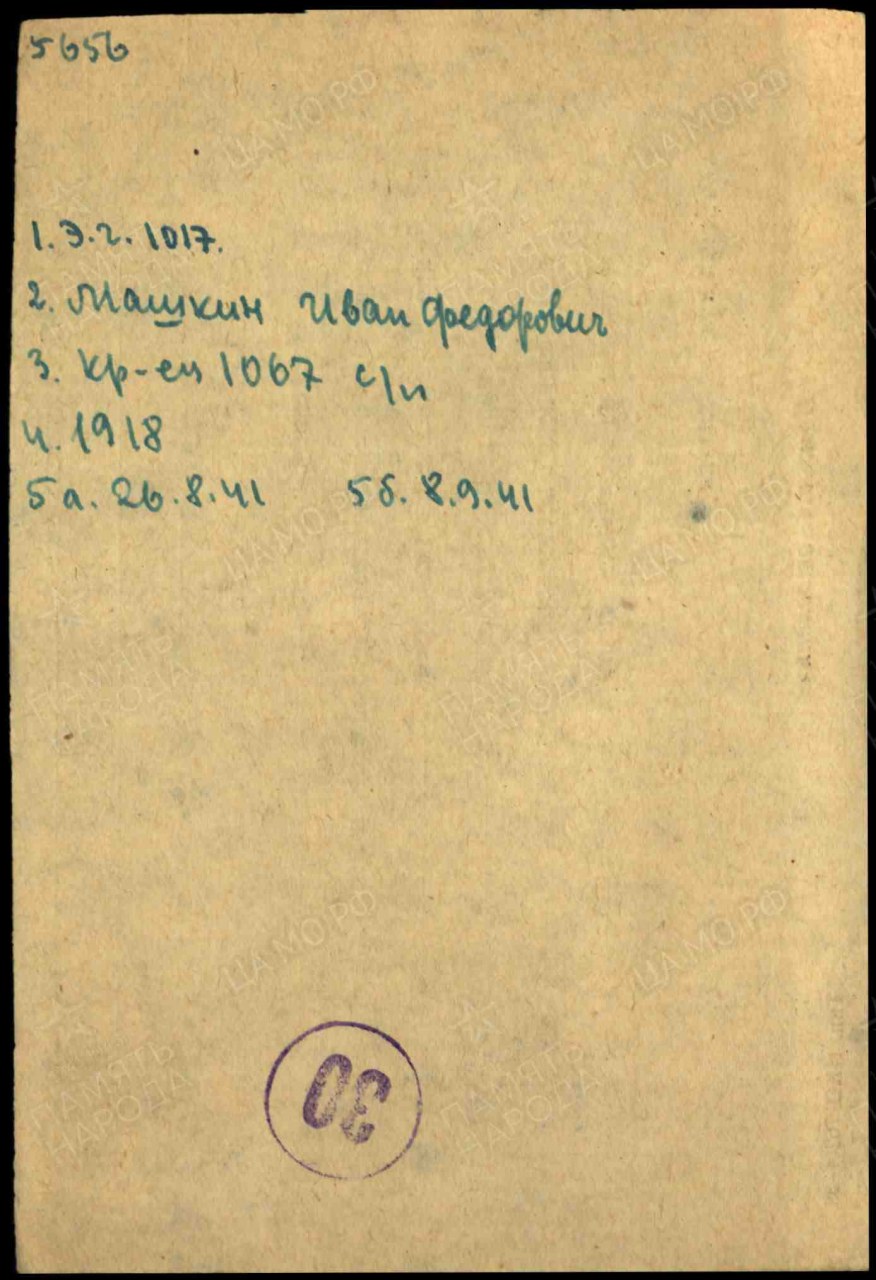 5656
1. Э.г. 1017.
2. Машкин Иван Федорович
3. кр-ец 1067 с/п
4. 1918
5а. 26.8.41 5б. 8.9.41
30
ЦАМО.РФ
ПАМЯТЬ НАРОДА